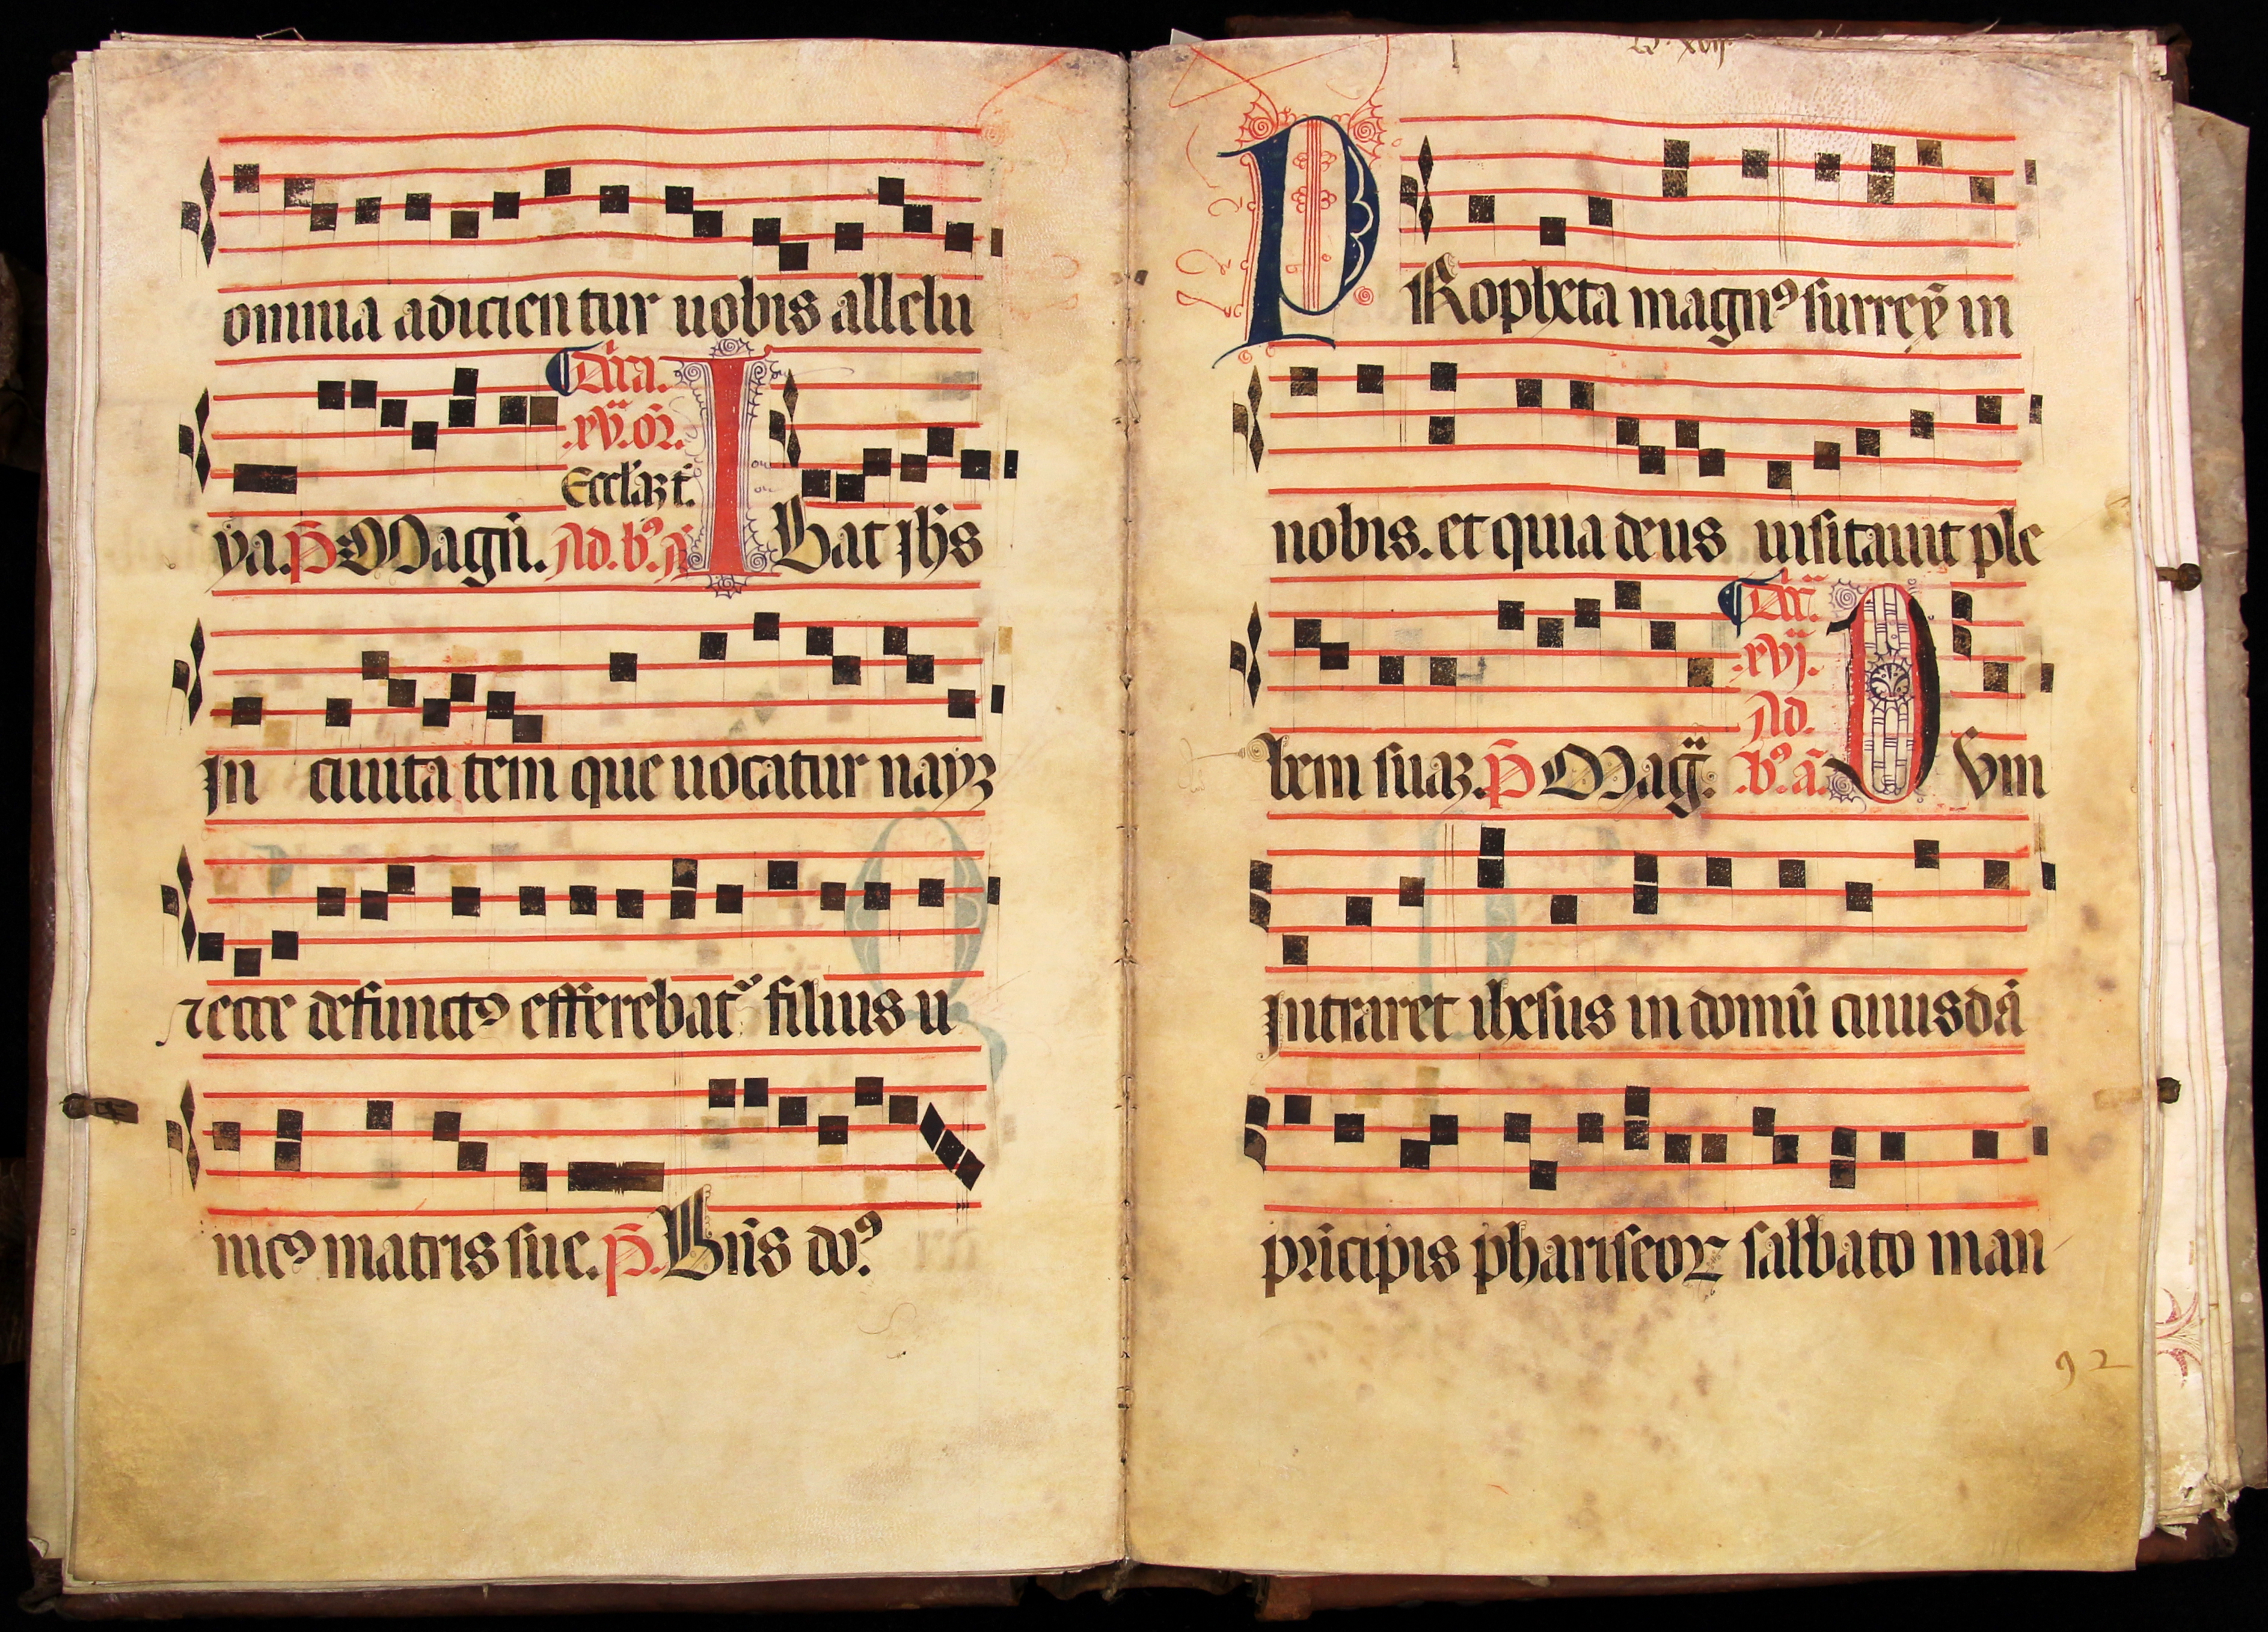 omnia adicientur uobis allelu
Dn̄ica.
.xv. or̄.
Eccl'az t̄.
ya. p̄ Magn̄. Ad. b⁹. aᷓ I Bat ih̄s
In ciuitatem que uocatur nayz
⁊ ecce defunct⁹ efferebat᷑ filius u
nic⁹ matris sue. p̄. Bn̄s do⁹
xvij
P Ropheta magn⁹ surrex̄ in
nobis. et quia deus uisitauit ple
Dn̄.
.xvj.
Ad.
bem suaz. p̄ Mag̅. .b⁹. aᷓ. C Vm
intraret ihesus in domū cuiusdā
pricipis phariseoꝝ sabbato man
92